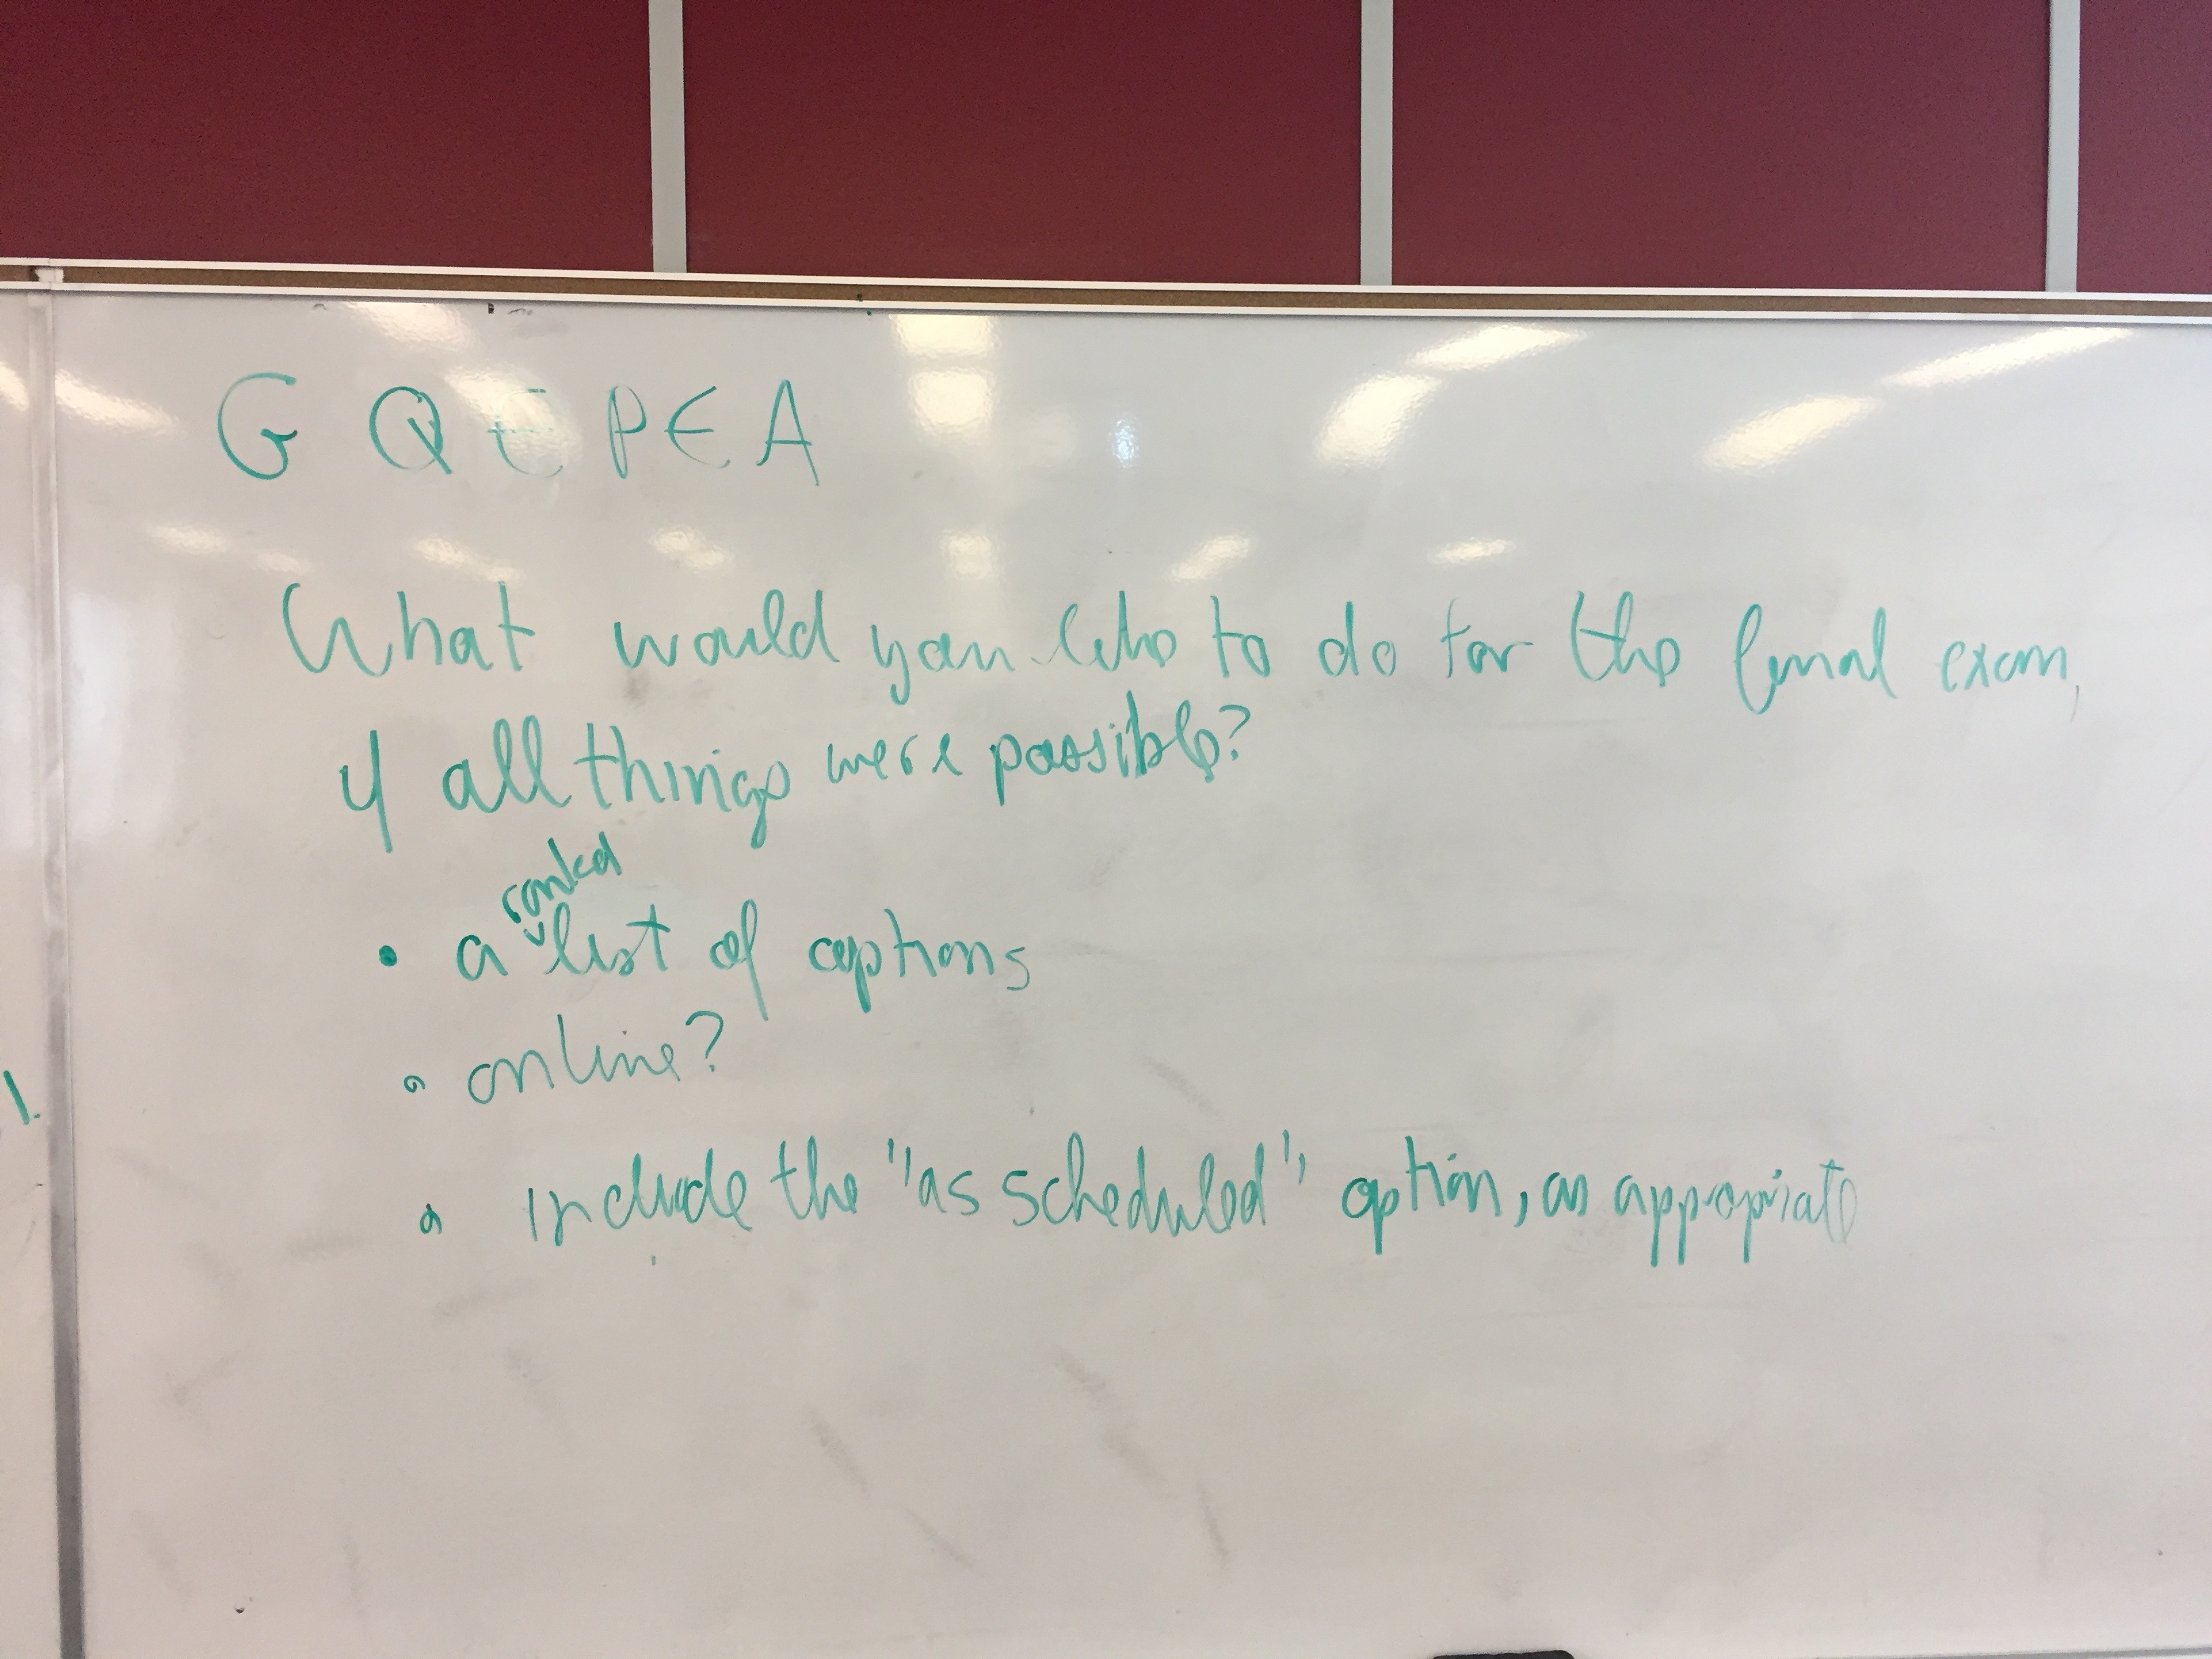 G Q E P E A
What would you like to do for the final exam,
if all things were possible?
ranked
• a list of options
• online?
1.
• include the "as scheduled" option, as appropriate